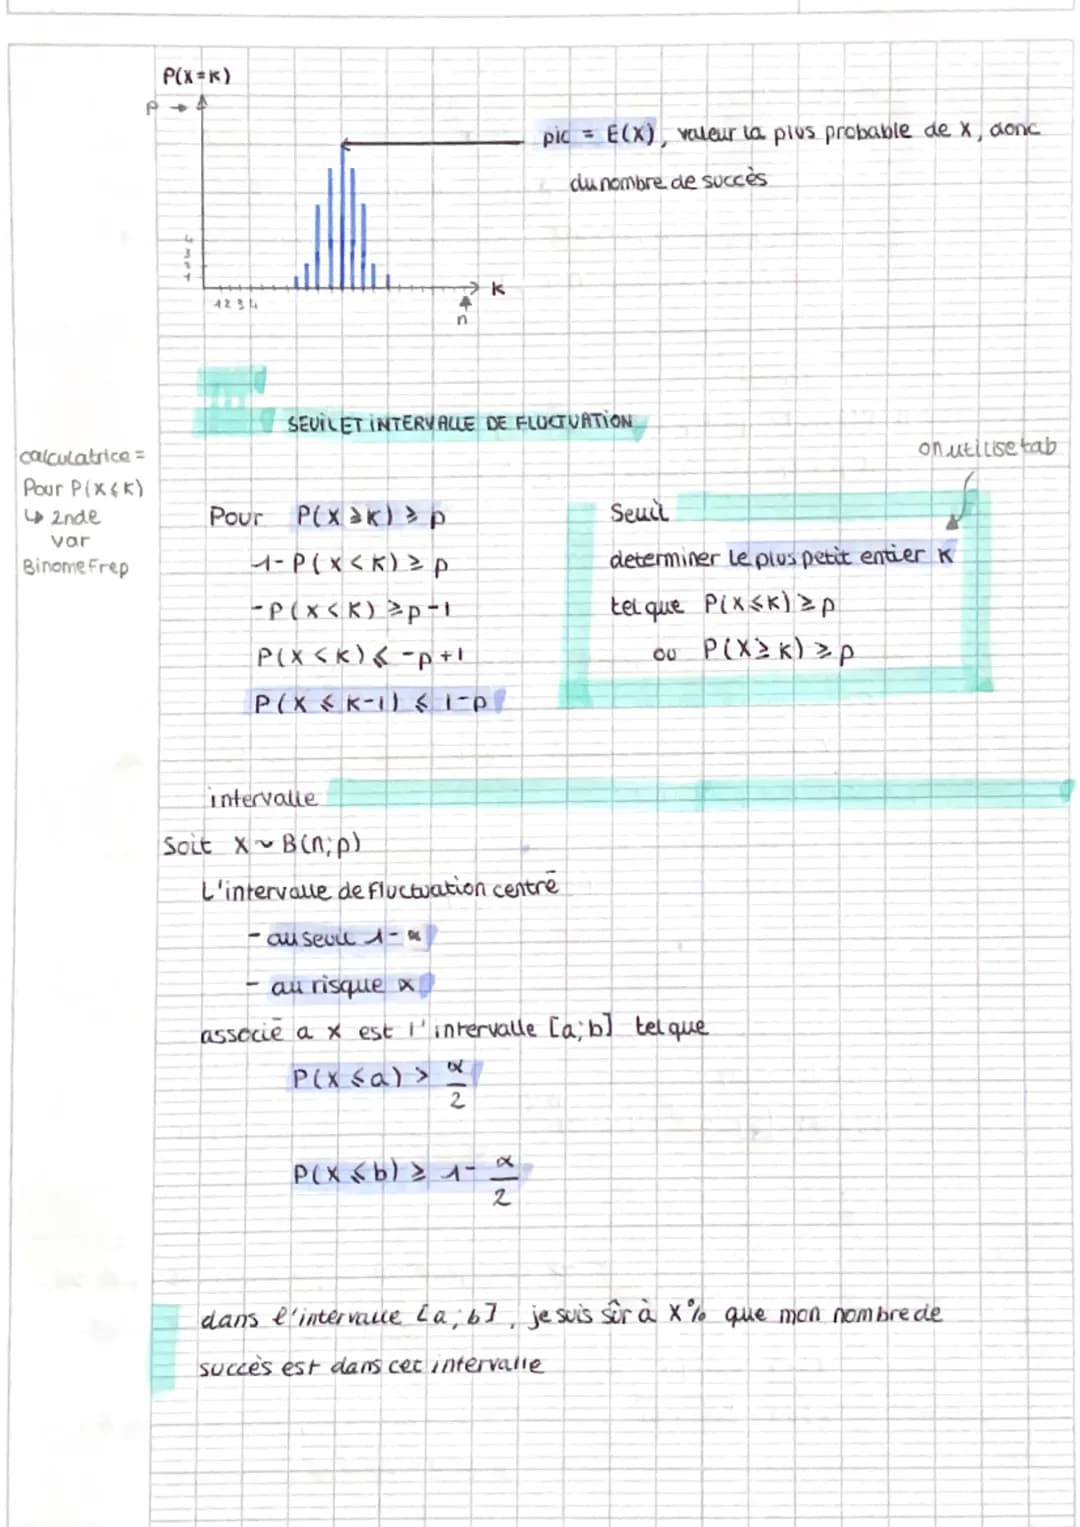 P(X=K)
P →
pic = E(X), valeur la plus probable de X, donc
du nombre de succès
4
3
2
1
1 2 3 4
K
n
III
SEUIL ET INTERVALLE DE FLUCTUATION
calculatrice =
Pour P(X⩽K)
↳ 2nde
var
BinomeFrep
on utilise tab
Pour P(X⩾K) ⩾ p
1-P(X<K) ⩾ p
-P(X<K) ⩾ p-1
P(X<K) ⩽ -p+1
P(X ⩽ K-1) ⩽ 1-p
Seuil
determiner le plus petit entier K
tel que P(X⩽K) ⩾ p
ou P(X⩾K) ⩾ p
intervalle
Soit X ~ B(n;p)
L'intervalle de fluctuation centré
- au seuil 1-α
- au risque α
associé a X est l'intervalle [a;b] tel que
P(X ⩽ a) > α/2
P(X ⩽ b) ⩾ 1- α/2
dans l'intervalle [a;b], je suis sûr à X% que mon nombre de
succès est dans cet intervalle